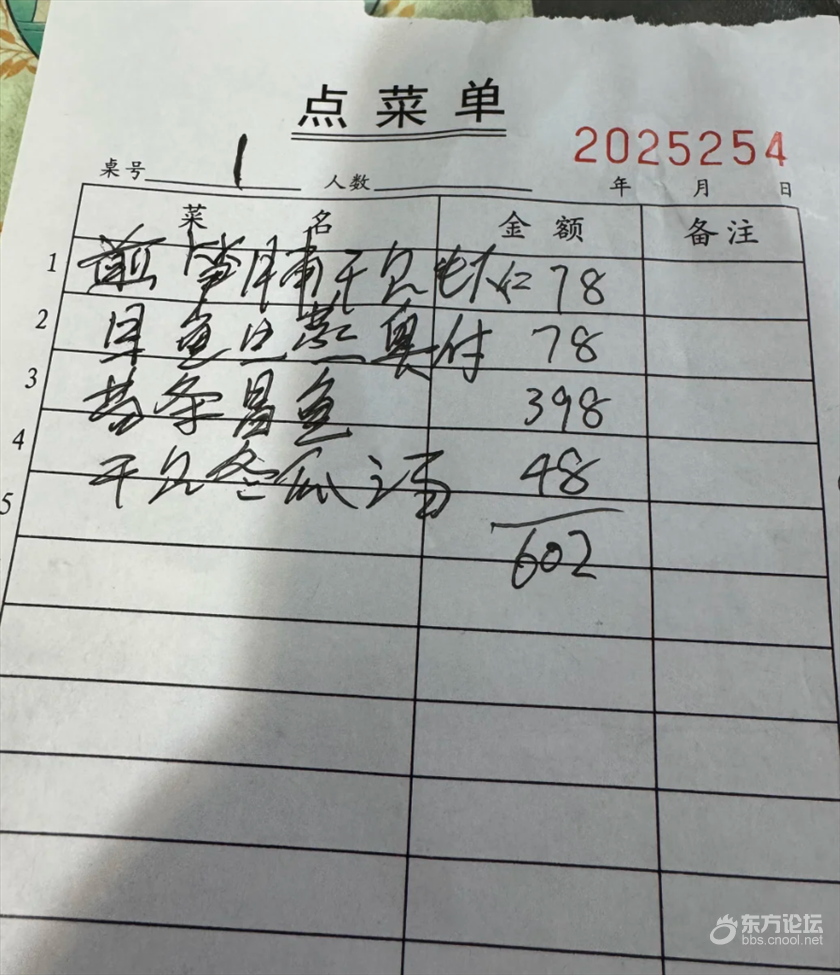 点菜单
2025254
桌号 1 人数 年 月 日
菜名 金额 备注
1 笋 干贝 仁 78
2 鱼 蒸臭付 78
3 昌鱼 398
4 干贝冬瓜汤 48
5 602
东方论坛
bbs.cnool.net